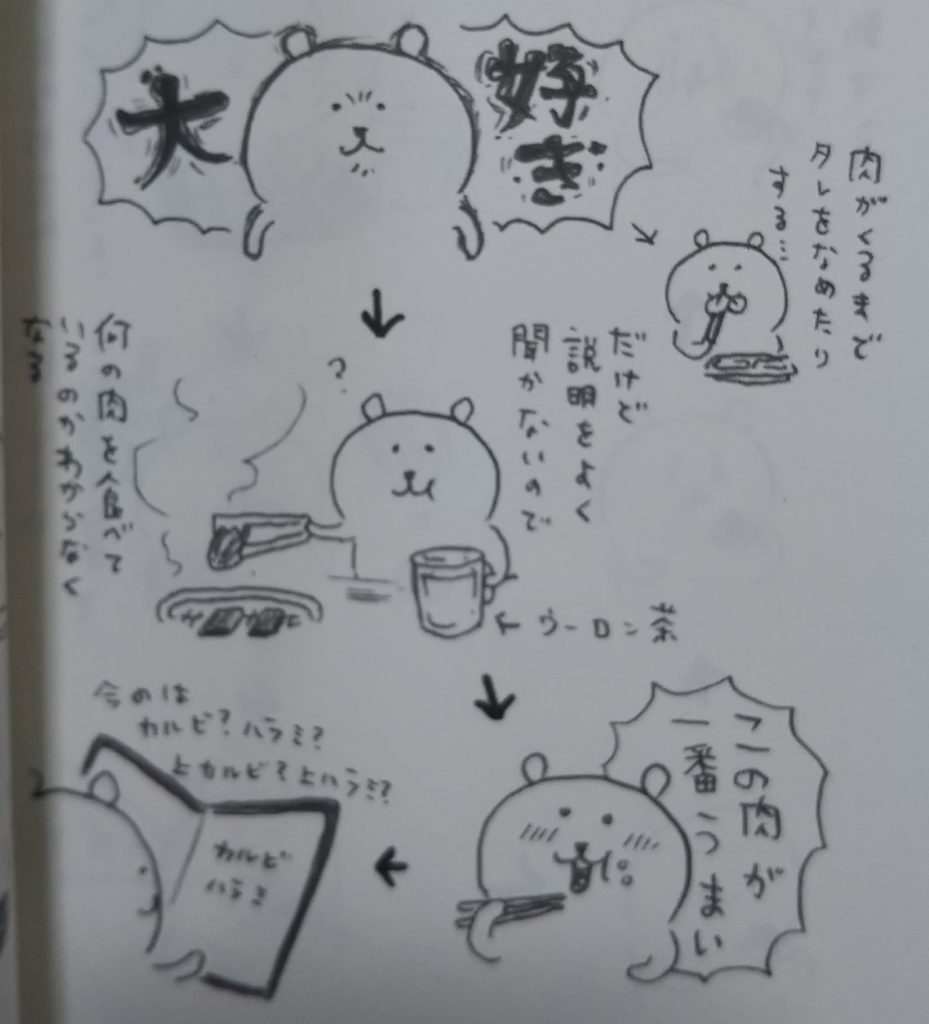 大好き
肉がくるまで
タレをなめたり
する…
だけど
説明をよく
聞かないので
?
何の肉を食べて
いるのかわからなく
なる
ウーロン茶
この肉が
一番うまい
今のは
カルビ?ハラミ?
上カルビ?上ハラミ?
カルビ
ハラミ